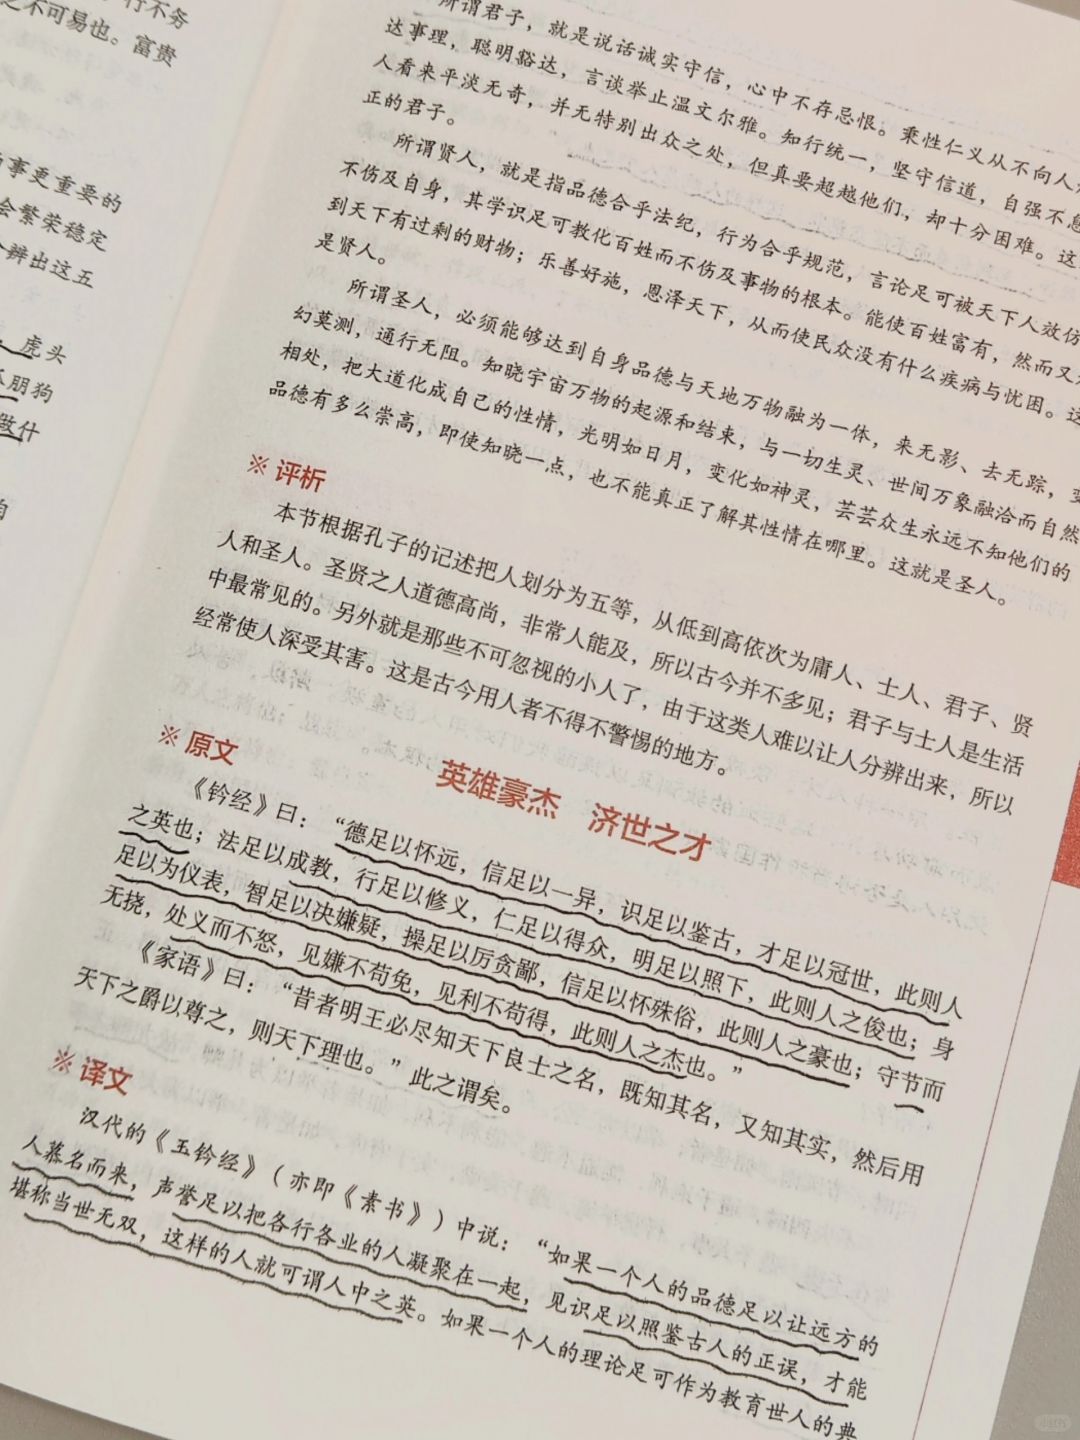 行不务
之不可易也。富贵
事更重要的
会繁荣稳定
辨出这五
虎头
朋狗
做什
所谓君子，就是说话诚实守信，心中不存忌恨。秉性仁义从不向人
达事理，聪明豁达，言谈举止温文尔雅。知行统一，坚守信道，自强不息
人看来平淡无奇，并无特别出众之处，但真要超越他们，却十分困难。这
正的君子。
所谓贤人，就是指品德合乎法纪，行为合乎规范，言论足可被天下人效仿
不伤及自身，其学识足可教化百姓而不伤及事物的根本。能使百姓富有，然而又
到天下有过剩的财物；乐善好施，恩泽天下，从而使民众没有什么疾病与忧困。这
是贤人。
所谓圣人，必须能够达到自身品德与天地万物融为一体，来无影、去无踪，变
幻莫测，通行无阻。知晓宇宙万物的起源和结束，与一切生灵、世间万象融洽而自然
相处，把大道化成自己的性情，光明如日月，变化如神灵，芸芸众生永远不知他们的
品德有多么崇高，即使知晓一点，也不能真正了解其性情在哪里。这就是圣人。
※ 评析
本节根据孔子的记述把人划分为五等，从低到高依次为庸人、士人、君子、贤
人和圣人。圣贤之人道德高尚，非常人能及，所以古今并不多见；君子与士人是生活
中最常见的。另外就是那些不可忽视的小人了，由于这类人难以让人分辨出来，所以
经常使人深受其害。这是古今用人者不得不警惕的地方。
英雄豪杰 济世之才
※ 原文
《钤经》曰：“德足以怀远，信足以一异，识足以鉴古，才足以冠世，此则人
之英也；法足以成教，行足以修义，仁足以得众，明足以照下，此则人之俊也；身
足以为仪表，智足以决嫌疑，操足以厉贪鄙，信足以怀殊俗，此则人之豪也；守节而
无挠，处义而不怒，见嫌不苟免，见利不苟得，此则人之杰也。”
《家语》曰：“昔者明王必尽知天下良士之名，既知其名，又知其实，然后用
天下之爵以尊之，则天下理也。”此之谓矣。
※ 译文
汉代的《玉钤经》（亦即《素书》）中说：“如果一个人的品德足以让远方的
人慕名而来，声誉足以把各行各业的人凝聚在一起，见识足以照鉴古人的正误，才能
堪称当世无双，这样的人就可谓人中之英。如果一个人的理论足可作为教育世人的典